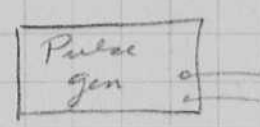 Pulse
gen